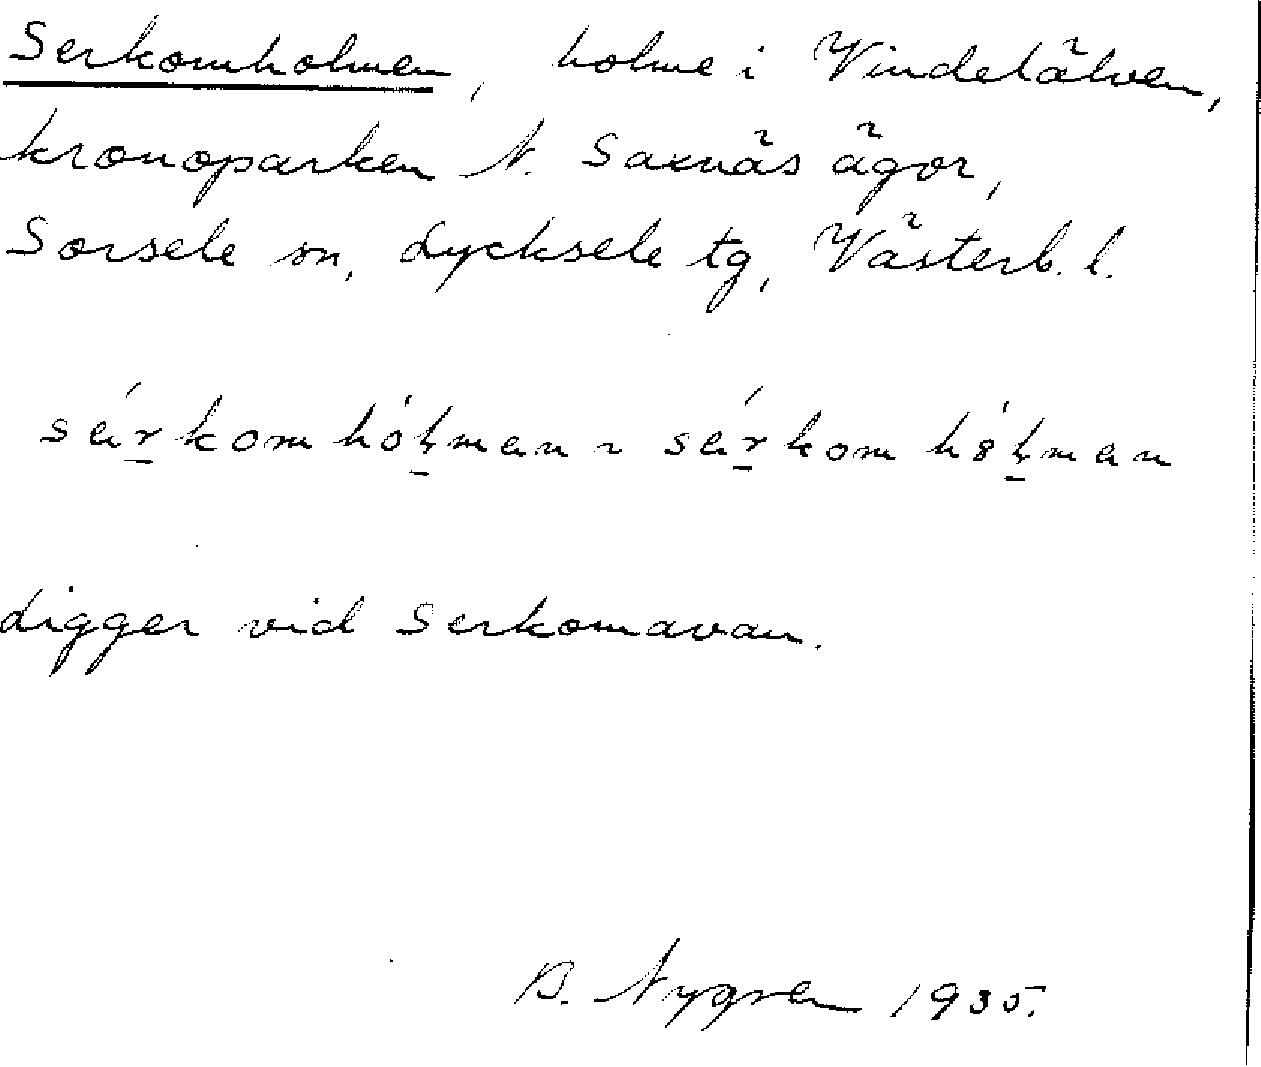 Serkomholmen, holme i Vindelälven,
kronoparken N. Saxnäs ägor,
Sorsele sn, Lycksele tg, Västerb. l.
sérkomhóļman ~ sérkomhöļman
Ligger vid Serkomavan.
B. Nygren 1935.